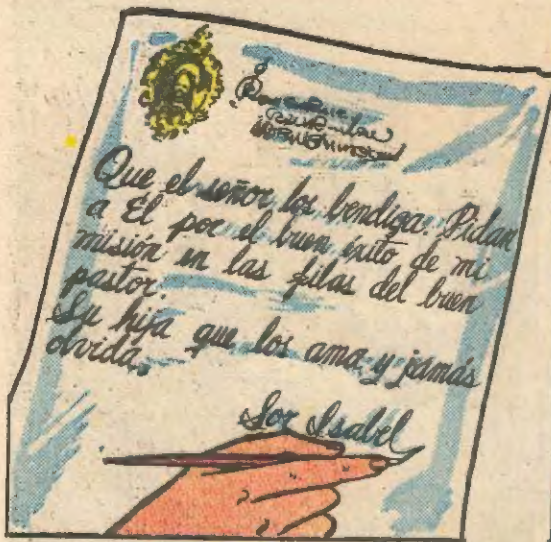 Que el señor los bendiga. Pidan
a Él por el buen éxito de mi
misión en las filas del buen
pastor.
Su hija que los ama y jamás
olvida.
Sor Isabel